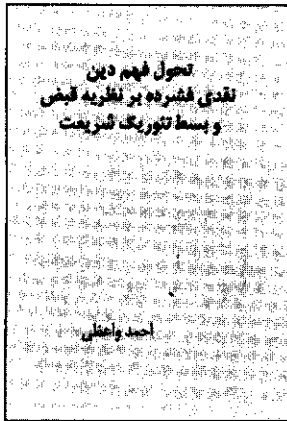 تحول فهم دین
نقدی فشرده بر نظریه قبض
و بسط تئوریک شریعت
احمد واعظی